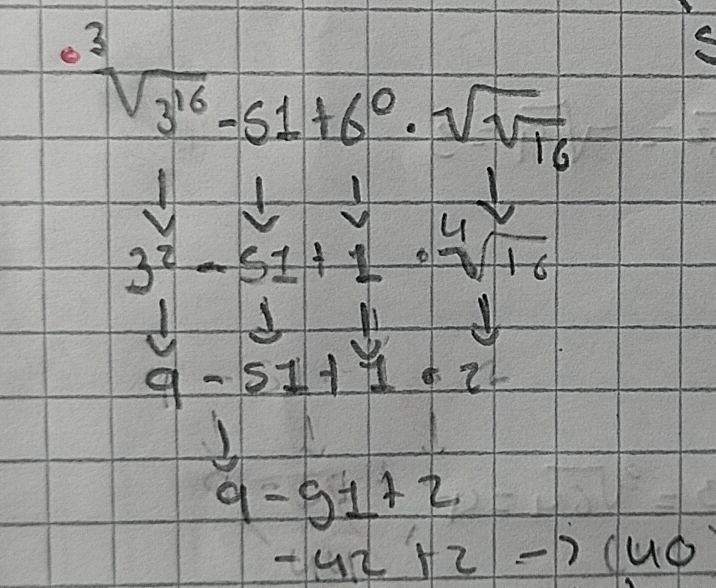 ³√3¹⁶ - 51 + 6⁰ · √√16
↓ ↓ ↓ ↓
3² - 51 + 1 · ⁴√16
↓ ↓ ↓ ↓
9 - 51 + 1 · 2
↓
9 - 91 + 2
-42 + 2 -> (40